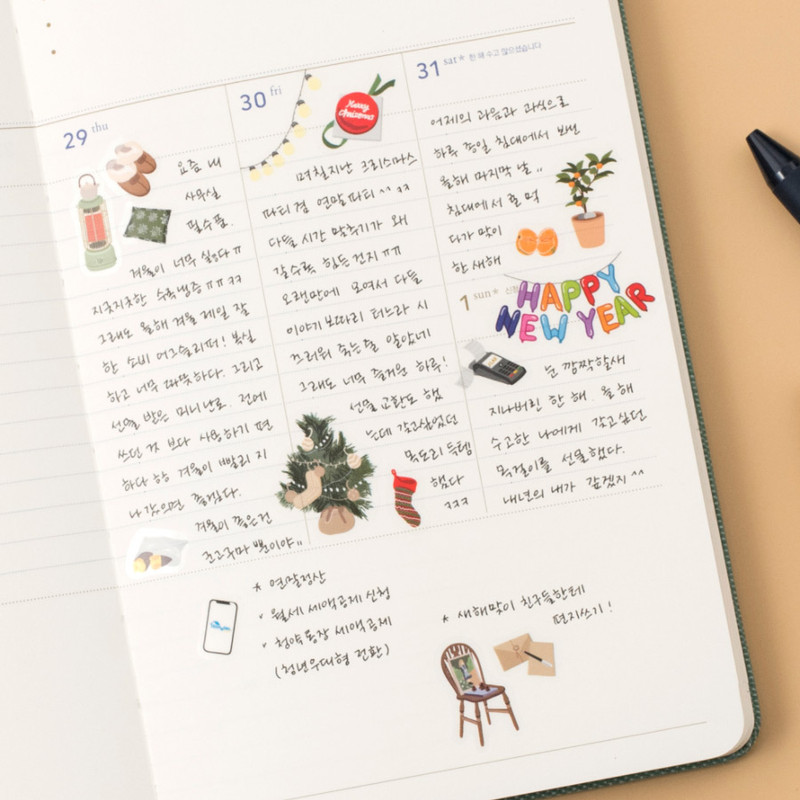 29 thu
요즘 내
사무실
필수품.
겨울이 너무 싫다ㅠ
지긋지긋한 수족냉증ㅠㅠㅋㅋ
그래도 올해 겨울 제일 잘
한 소비 어그슬리퍼! 복실
하고 너무 따뜻하다. 그리고
선물 받은 미니난로. 전에
쓰던 것 보다 사용하기 편
하다 항 겨울이 빨리 지
나갔으면 좋겠다.
겨울이 좋은건
군고구마 뿐이야"
30 fri
Merry
Christmas
며칠지난 크리스마스
파티 겸 연말파티^^ ㅋㅋ
다들 시간 맞추기가 왜
갈수록 힘든건지 ㅠㅠ
오랜만에 모여서 다들
이야기 보따리 터느라 시
끄러워 죽는줄 알았네
그래도 너무 즐거운 하루!
선물 교환도 했
는데 갖고싶었던
목도리 득템
했다
ㅋㅋㅋ
31 sat* 한 해 수고 많으셨습니다
어제의 과음과 과식으로
하루 종일 침대에서 보낸
올해 마지막 날"
침대에서 귤 먹
다가 맞이
한 새해
1 sun* 신정
HAPPY
NEW YEAR
눈 깜짝할새
지나버린 한 해. 올 해
수고한 나에게 갖고싶던
목걸이를 선물했다.
내년의 내가 갚겠지^^
* 연말정산
· 월세 세액공제 신청
· 청약통장 세액공제
(청년우대형 전환)
* 새해맞이 친구들한테
편지쓰기!